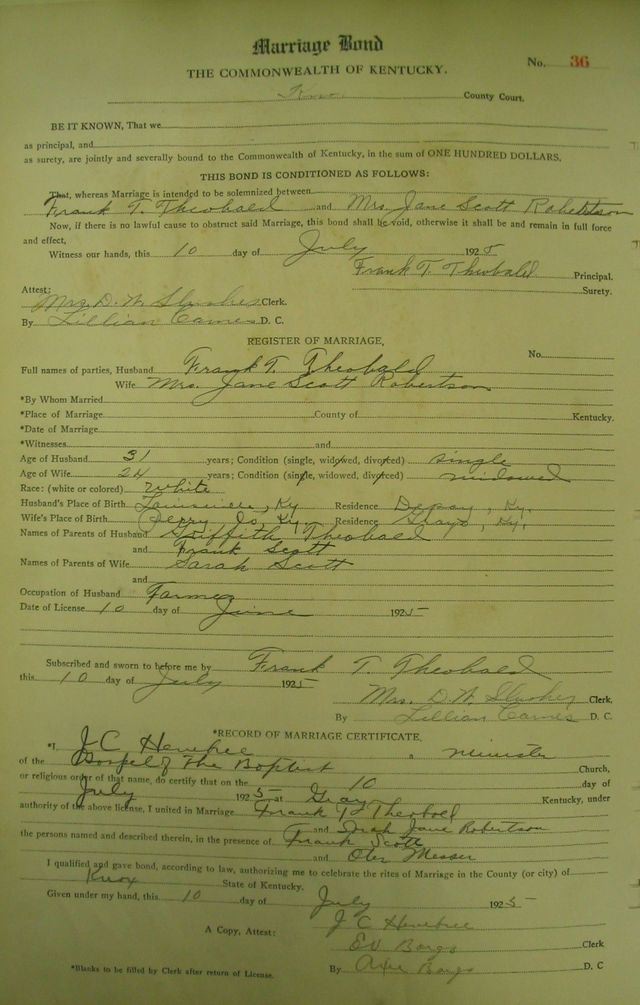 Marriage Bond
No. 36
THE COMMONWEALTH OF KENTUCKY.
Knox County Court.
BE IT KNOWN, That we
as principal, and
as surety, are jointly and severally bound to the Commonwealth of Kentucky, in the sum of ONE HUNDRED DOLLARS.
THIS BOND IS CONDITIONED AS FOLLOWS:
That, whereas Marriage is intended to be solemnized between
Frank T. Theobald and Mrs. Jane Scott Robertson
Now, if there is no lawful cause to obstruct said Marriage, this bond shall be void, otherwise it shall be and remain in full force
and effect,
Witness our hands, this 10 day of July 1925
Frank T. Theobald Principal.
Surety.
Attest:
Mrs. D. W. Slusher Clerk.
By Lillian Carnes D. C.
REGISTER OF MARRIAGE,
No.
Full names of parties, Husband Frank T. Theobald
Wife Mrs. Jane Scott Robertson
*By Whom Married
*Place of Marriage County of Kentucky.
*Date of Marriage
*Witnesses and
Age of Husband 31 years; Condition (single, widowed, divorced) single
Age of Wife 24 years; Condition (single, widowed, divorced) widowed
Race: (white or colored) white
Husband's Place of Birth Louisville, Ky Residence Depoy, Ky.
Wife's Place of Birth Perry Co, Ky. Residence Grays, Ky.
Names of Parents of Husband Griffith Theobald
and Frank Scott
Names of Parents of Wife Sarah Scott
and
Occupation of Husband Farmer
Date of License 10 day of June 1925
Subscribed and sworn to before me by Frank T Theobald
this 10 day of July 1925
Mrs. D. W. Slusher Clerk,
By Lillian Carnes D. C.
*RECORD OF MARRIAGE CERTIFICATE,
*I, J C a minister
of the Gospel of The Baptist Church,
or religious order of that name, do certify that on the 10 day of
July 1925 at Gray Kentucky, under
authority of the above license, I united in Marriage Frank T Theobold
and Sarah Jane Robertson
the persons named and described therein, in the presence of Frank Scott
and Oler Messer
I qualified and gave bond, according to law, authorizing me to celebrate the rites of Marriage in the County (or city) of
Knox State of Kentucky.
Given under my hand, this 10 day of July 1925
J C
A Copy, Attest:
Ed Clerk
By D. C
*Blanks to be filled by Clerk after return of License.